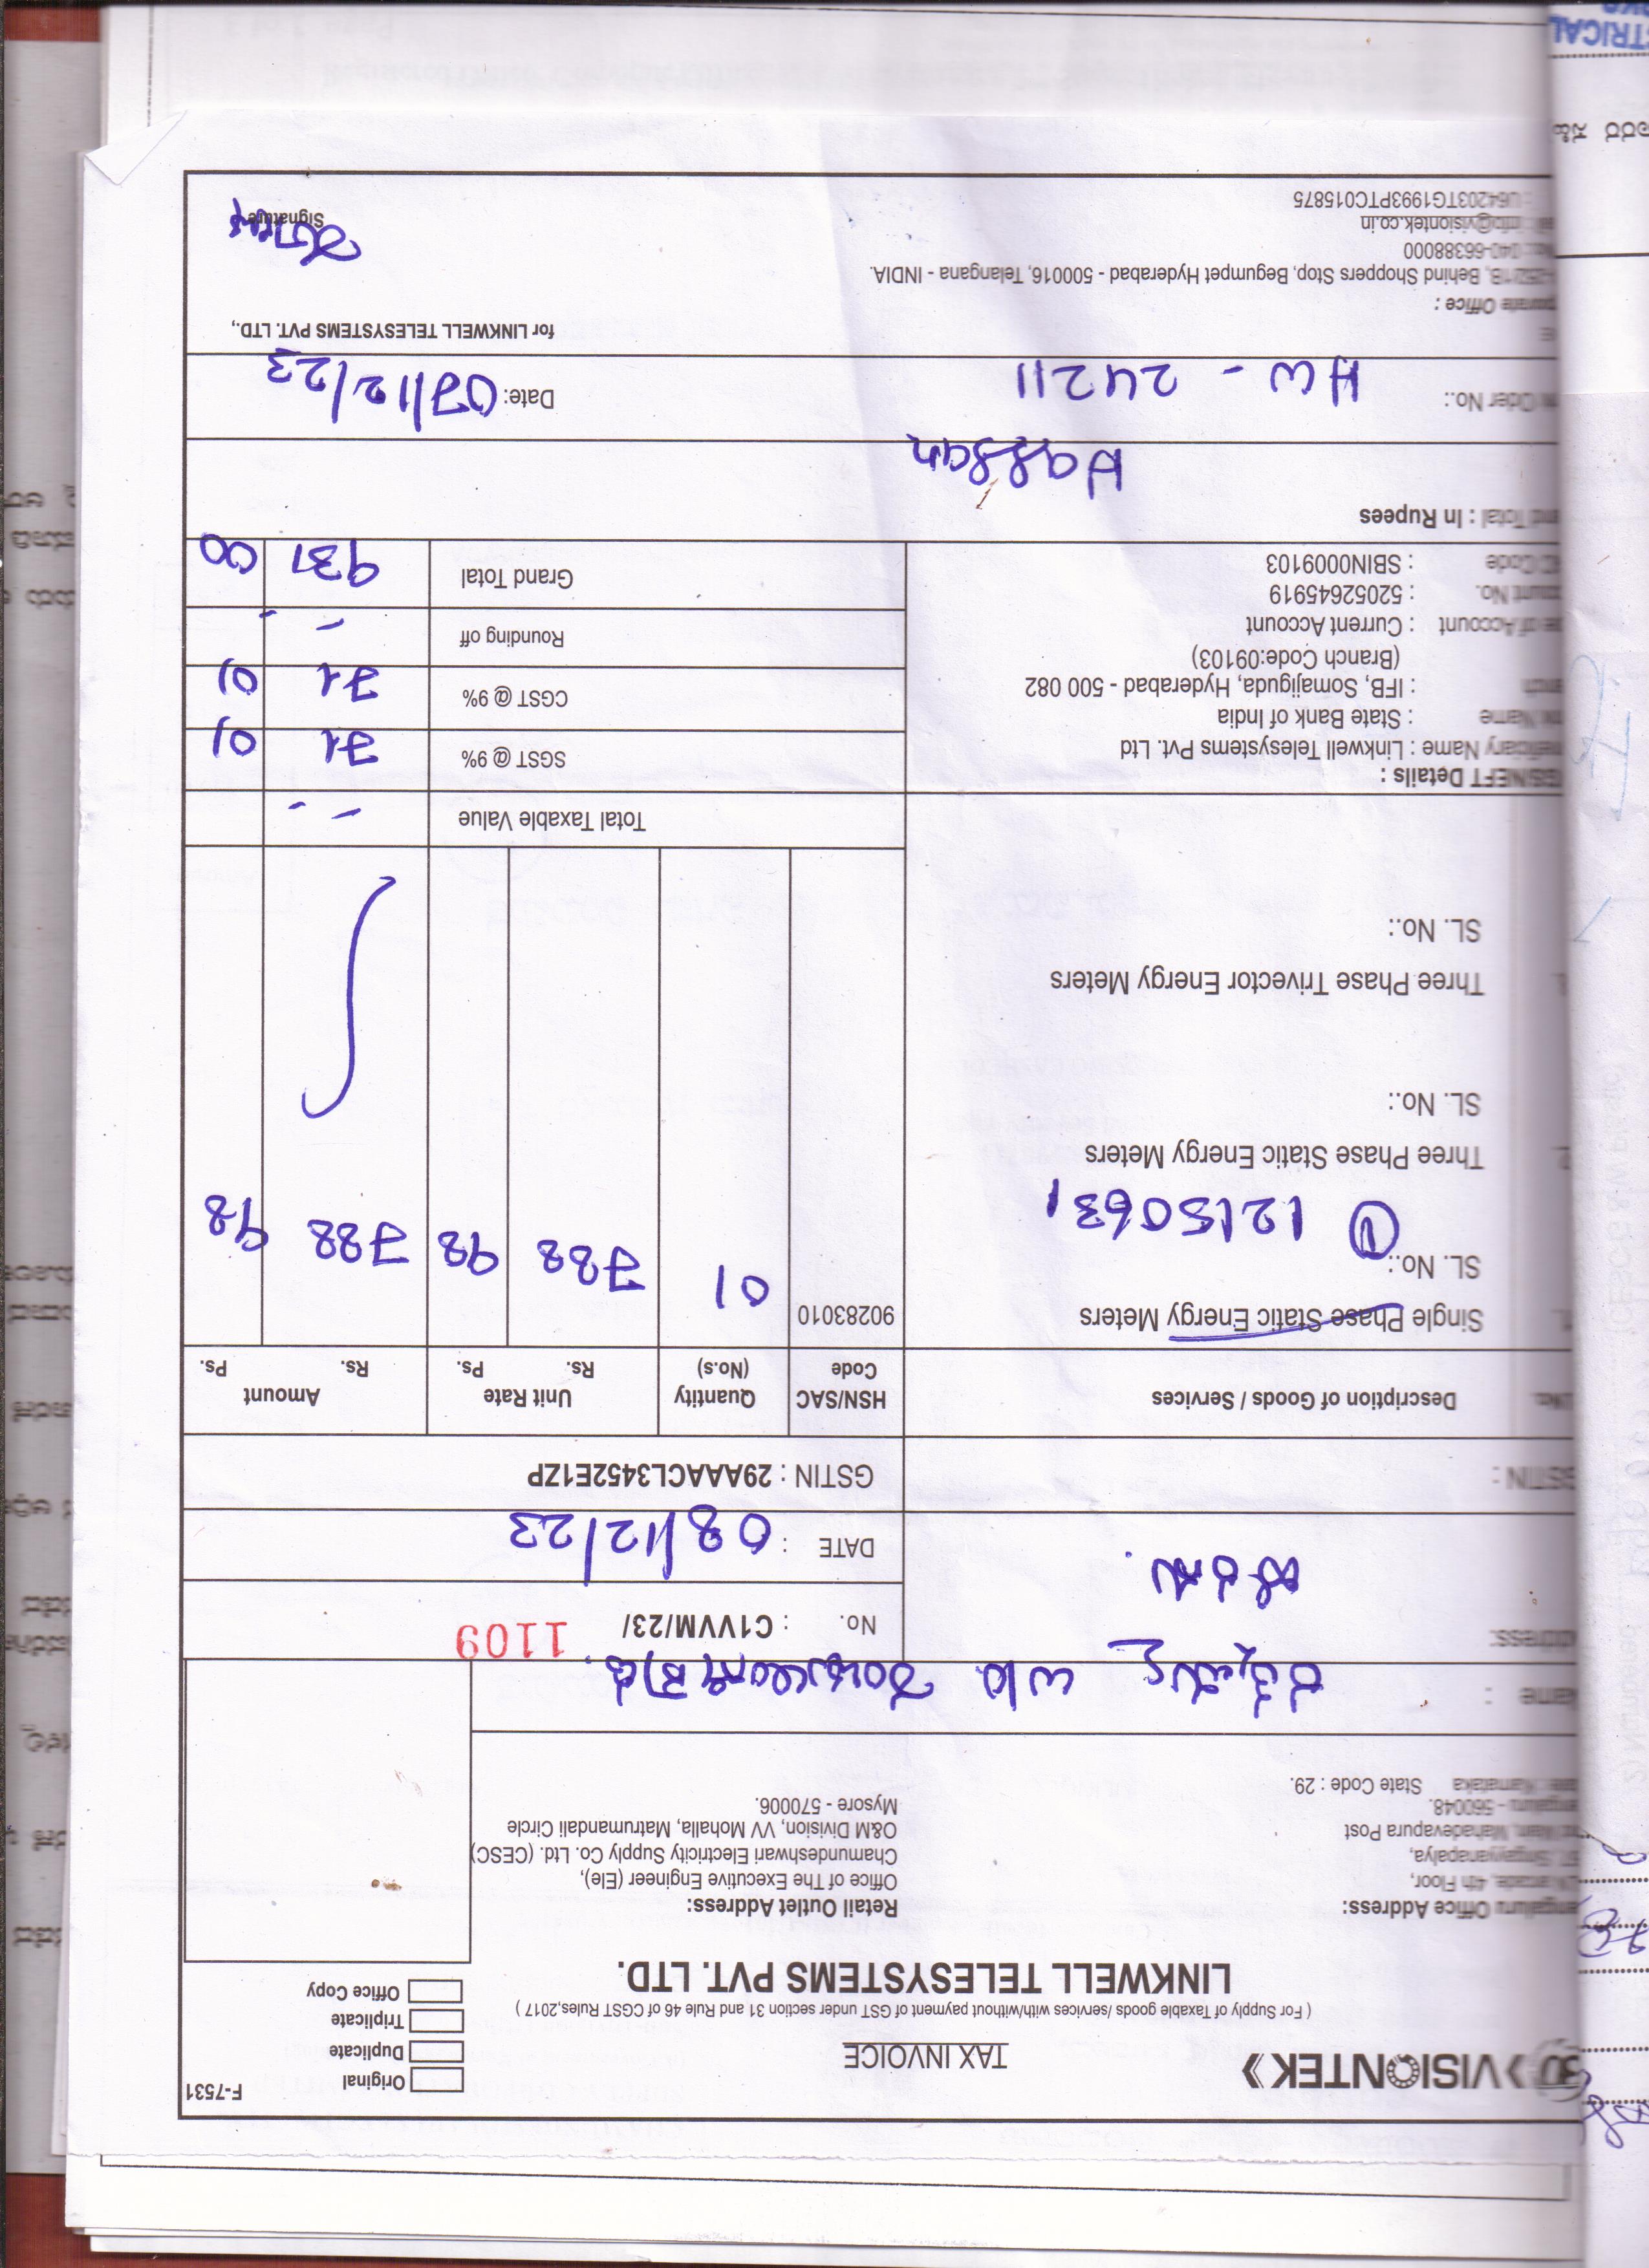 VISIONTEK
TAX INVOICE
F-7531
Original
Duplicate
Triplicate
Office Copy
( For Supply of Taxable goods /services with/without payment of GST under section 31 and Rule 46 of CGST Rules,2017 )
LINKWELL TELESYSTEMS PVT. LTD.
Office Address:
4th Floor,
Singayyanapalya,
Mahadevapura Post
- 560048.
Karnataka State Code : 29.
Retail Outlet Address:
Office of The Executive Engineer (Ele),
Chamundeshwari Electricity Supply Co. Ltd. (CESC)
O&M Division, VV Mohalla, Matrumandali Circle
Mysore - 570006.
w/o
No. : C1VVM/23/ 1109
DATE : 08/12/23
GSTIN :
GSTIN : 29AAACL3452E1ZP
Description of Goods / Services HSN/SAC Code Quantity (No.s) Unit Rate Rs. Ps. Amount Rs. Ps.
Single Phase Static Energy Meters 90283010 01 788 98 788 98
SL. No.: ① 12150631
Three Phase Static Energy Meters
SL. No.:
Three Phase Trivector Energy Meters
SL. No.:
Total Taxable Value - -
SGST @ 9% 71 01
CGST @ 9% 71 01
Rounding off - -
Grand Total 931 00
NEFT Details :
Name : Linkwell Telesystems Pvt. Ltd
Name : State Bank of India
: IFB, Somajiguda, Hyderabad - 500 082
(Branch Code:09103)
of Account : Current Account
No. : 52052645919
Code : SBIN0009103
Total : In Rupees
Hassan
Oder No.: HW - 24211
Date: 07/12/23
Office :
Behind Shoppers Stop, Begumpet Hyderabad - 500016, Telangana - INDIA.
040-66388000
info@visiontek.co.in
: U64203TG1993PTC015875
for LINKWELL TELESYSTEMS PVT. LTD.,
Signature